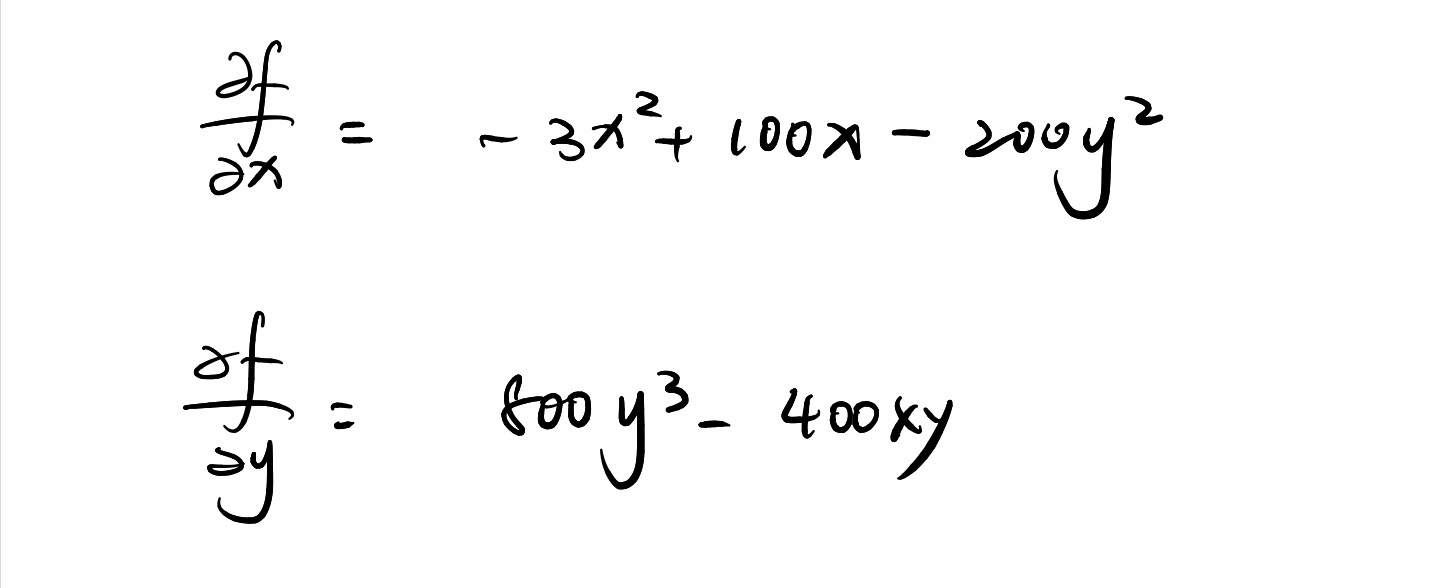 ∂f/∂x = - 3x² + 100x - 200y²
∂f/∂y = 800y³ - 400xy